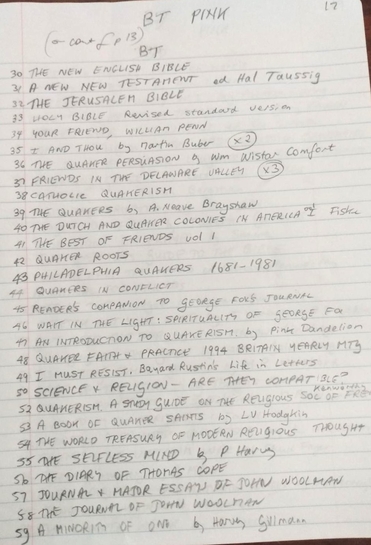 BT PINK 17
(↩ cont f p 13)
BT
30 THE NEW ENGLISH BIBLE
31 A NEW NEW TESTAMENT ed Hal Taussig
32 THE JERUSALEM BIBLE
33 HOLY BIBLE Revised standard version
34 YOUR FRIEND, WILLIAM PENN
35 I AND THOU by Martin Buber x2
36 THE QUAKER PERSUASION by Wm Wistar Comfort
37 FRIENDS IN THE DELAWARE VALLEY x3
38 CATHOLIC QUAKERISM
39 THE QUAKERS by A. Neave Brayshaw
40 THE DUTCH AND QUAKER COLONIES IN AMERICA vol I Fiske
41 THE BEST OF FRIENDS vol 1
42 QUAKER ROOTS
43 PHILADELPHIA QUAKERS 1681-1981
44 QUAKERS IN CONFLICT
45 READER'S COMPANION TO GEORGE FOX'S JOURNAL
46 WAIT IN THE LIGHT: SPIRITUALITY OF GEORGE FOX
47 AN INTRODUCTION TO QUAKERISM. by Pink Dandelion
48 QUAKER FAITH & PRACTICE 1994 BRITAIN YEARLY MTG
49 I MUST RESIST. Bayard Rustin's Life in Letters
50 SCIENCE & RELIGION - ARE THEY COMPATIBLE?
52 QUAKERISM, A STUDY GUIDE ON THE RELIGIOUS SOC OF FRIENDS Kenworthy
53 A BOOK OF QUAKER SAINTS by LV Hodgkin
54 THE WORLD TREASURY OF MODERN RELIGIOUS THOUGHT
55 THE SELFLESS MIND by P Harvey
56 THE DIARY OF THOMAS COPE
57 JOURNAL & MAJOR ESSAYS OF JOHN WOOLMAN
58 THE JOURNAL OF JOHN WOOLMAN
59 A MINORITY OF ONE by Harvey Gillman